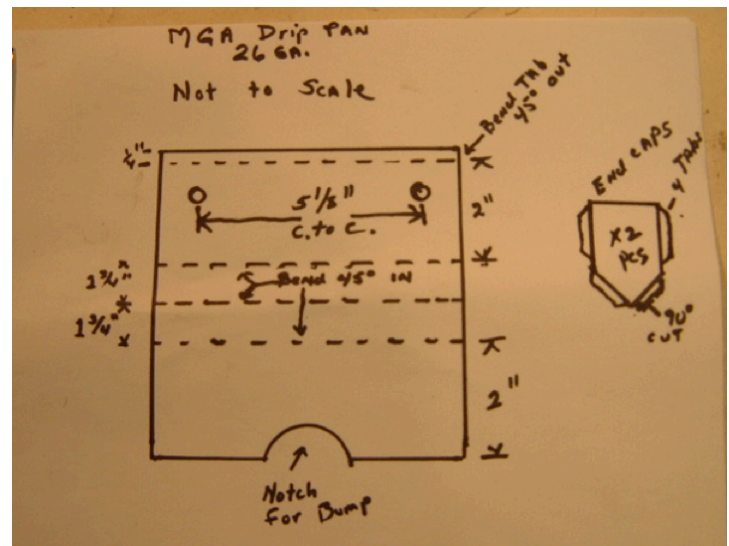 MGA Drip PAN
26 GA.
Not to Scale
Bend TAB
45° out
1/4"
5 1/8"
C. to C.
2"
1 3/4"
Bend 45° IN
1 3/4"
2"
Notch
For Bump
End CAPS
4 TABS
X2
pcs
90°
CUT